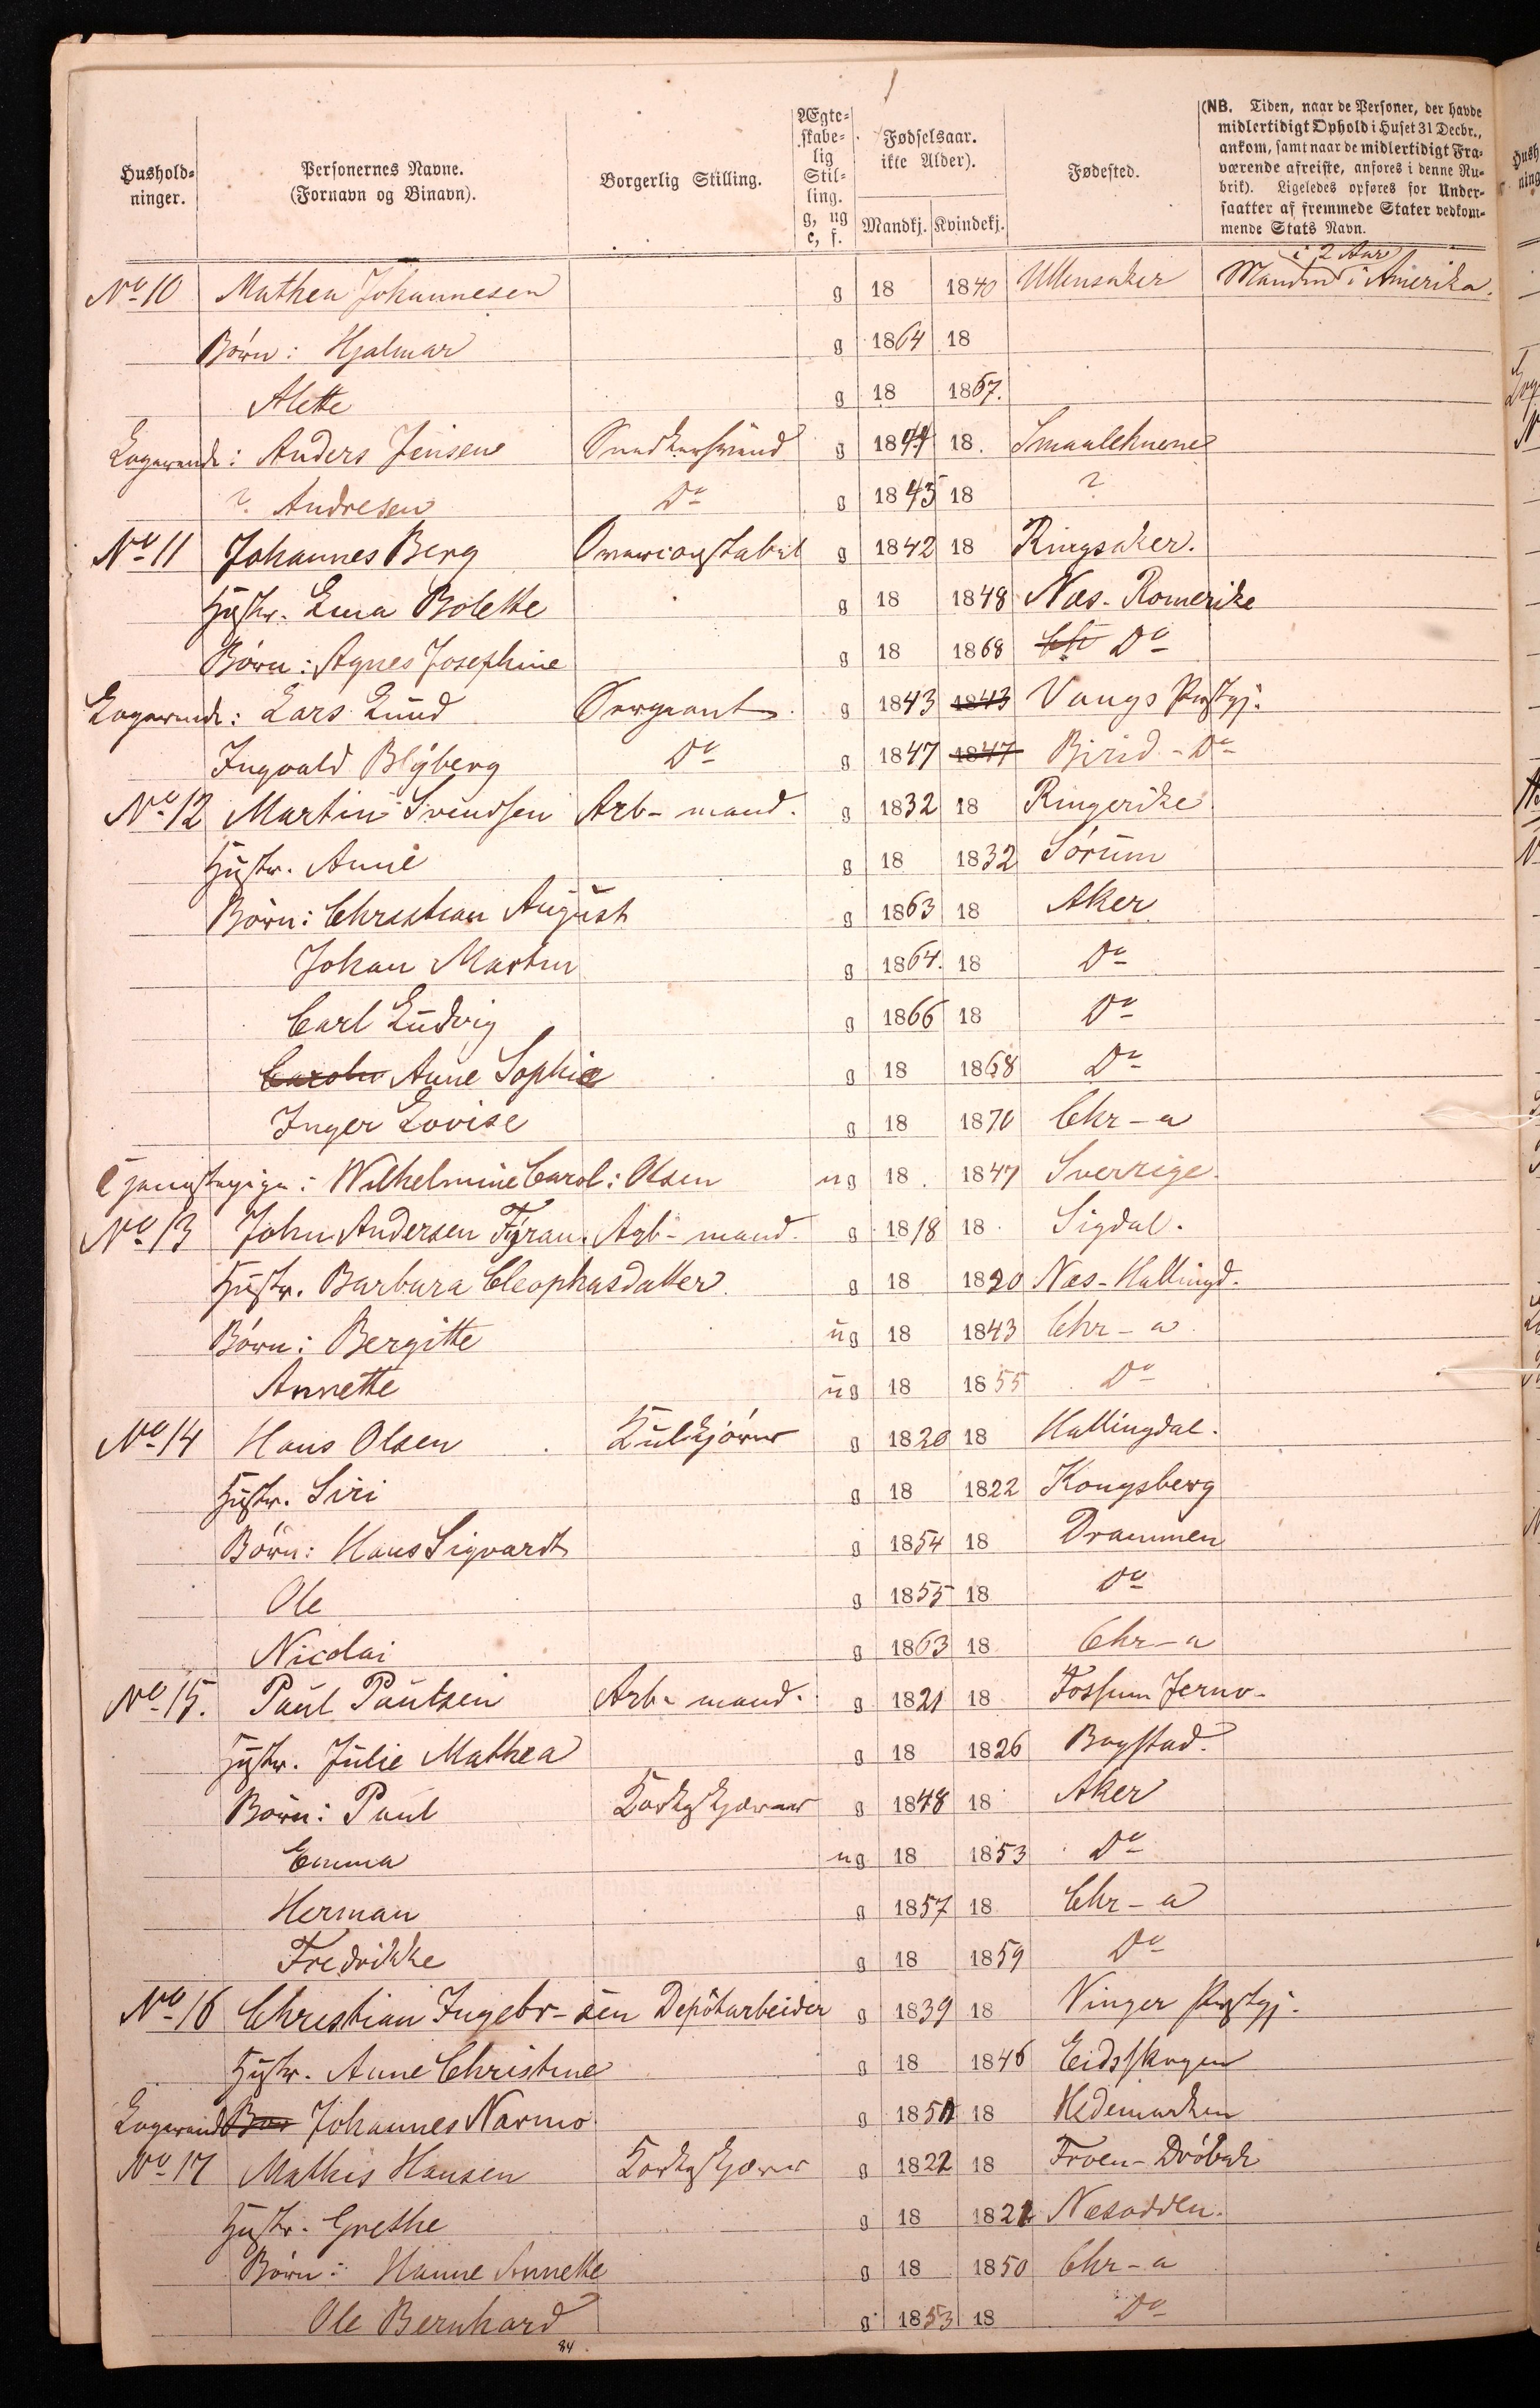 Hushold-ninger. Personernes Navne. (Fornavn og Binavn). Borgerlig Stilling. Ægte-skabe-lig Stil-ling. g, ug e, f. Fødselsaar. ikke Alder). Mandkj. Kvindekj. Fødested. (NB. Tiden, naar de Personer, der havde midlertidigt Ophold i Huset 31 Decbr., ankom, samt naar de midlertidigt Fra-værende afreiste, anføres i denne Ru-brik). Ligeledes opføres for Under-saatter af fremmede Stater vedkom-mende Stats Navn.
No 10 Mathea Johannesen g 18 1840 Ullensaker Manden i 2 Aar i Amerika.
Børn: Hjalmar g 1864 18
Alette g 18 1867.
Logerende: Anders Jensen Snedkersvend g 1844 18. Smaalehnene
? Andresen Do g 1845 18 ?
No 11 Johannes Berg Overconstabel g 1842 18 Ringsaker.
Hustr. Lina Bolette g 18 1848 Næs-Romerike
Børn: Agnes Josephine g 18 1868 Do
Logerende: Lars Lund Sergeant g 1843 1843 Vangs Prstgj.
Ingvald Blyberg Do g 1847 1847 Birid - Do
No 12 Martin Svendsen Arb-mand. g 1832 18 Ringerike
Hustr. Anne g 18 1832 Sørum
Børn: Christian August g 1863 18 Aker
Johan Martin g 1864. 18 Do
Carl Ludvig g 1866 18 Do
Carolin Anne Sophie g 18 1868 Do
Inger Lovise g 18 1870 Chr-a
Tjenestepige: Wilhelmine Carol: Olsen ug 18. 1847 Sverrige.
No 13 John Andersen Fyran. Arb-mand. g 1818 18 Sigdal.
Hustr. Barbara Cleophasdatter g 18 1820 Næs-Hallingd.
Børn: Bergitte ug 18 1843 Chr-a
Annette ug 18 1855 Do
No 14 Hans Olsen Kulkjører g 1820 18 Hallingdal.
Hustr. Siri g 18 1822 Kongsberg
Børn: Hans Sigvardt g 1854 18 Drammen
Ole g 1855 18 Do
Nicolai g 1863 18 Chr-a
No 15. Paul Paulsen Arb-mand. g 1821 18 Fossum Jernv-
Hustr. Julie Mathea g 18 1826 Bogstad.
Børn: Paul Korkskjærer g 1848 18 Aker
Emma ug 18 1853 Do
Herman g 1857 18 Chr-a
Fredrikke g 18 1859 Do
No 16 Christian Ingebr-sen Depôtarbeider g 1839 18 Vinger Prstgj.
Hustr. Anne Christine g 18 1846 Eidsskogen
Logerende Johannes Narmo g 1851 18 Hedemarken
No 17 Mathis Hansen Korkskjærer g 1822 18 Froen-Drøbak
Hustr. Grethe g 18 1821 Næsodden.
Børn: Hanne Annette g 18 1850 Chr-a
Ole Bernhard g 1853 18 Do
84.